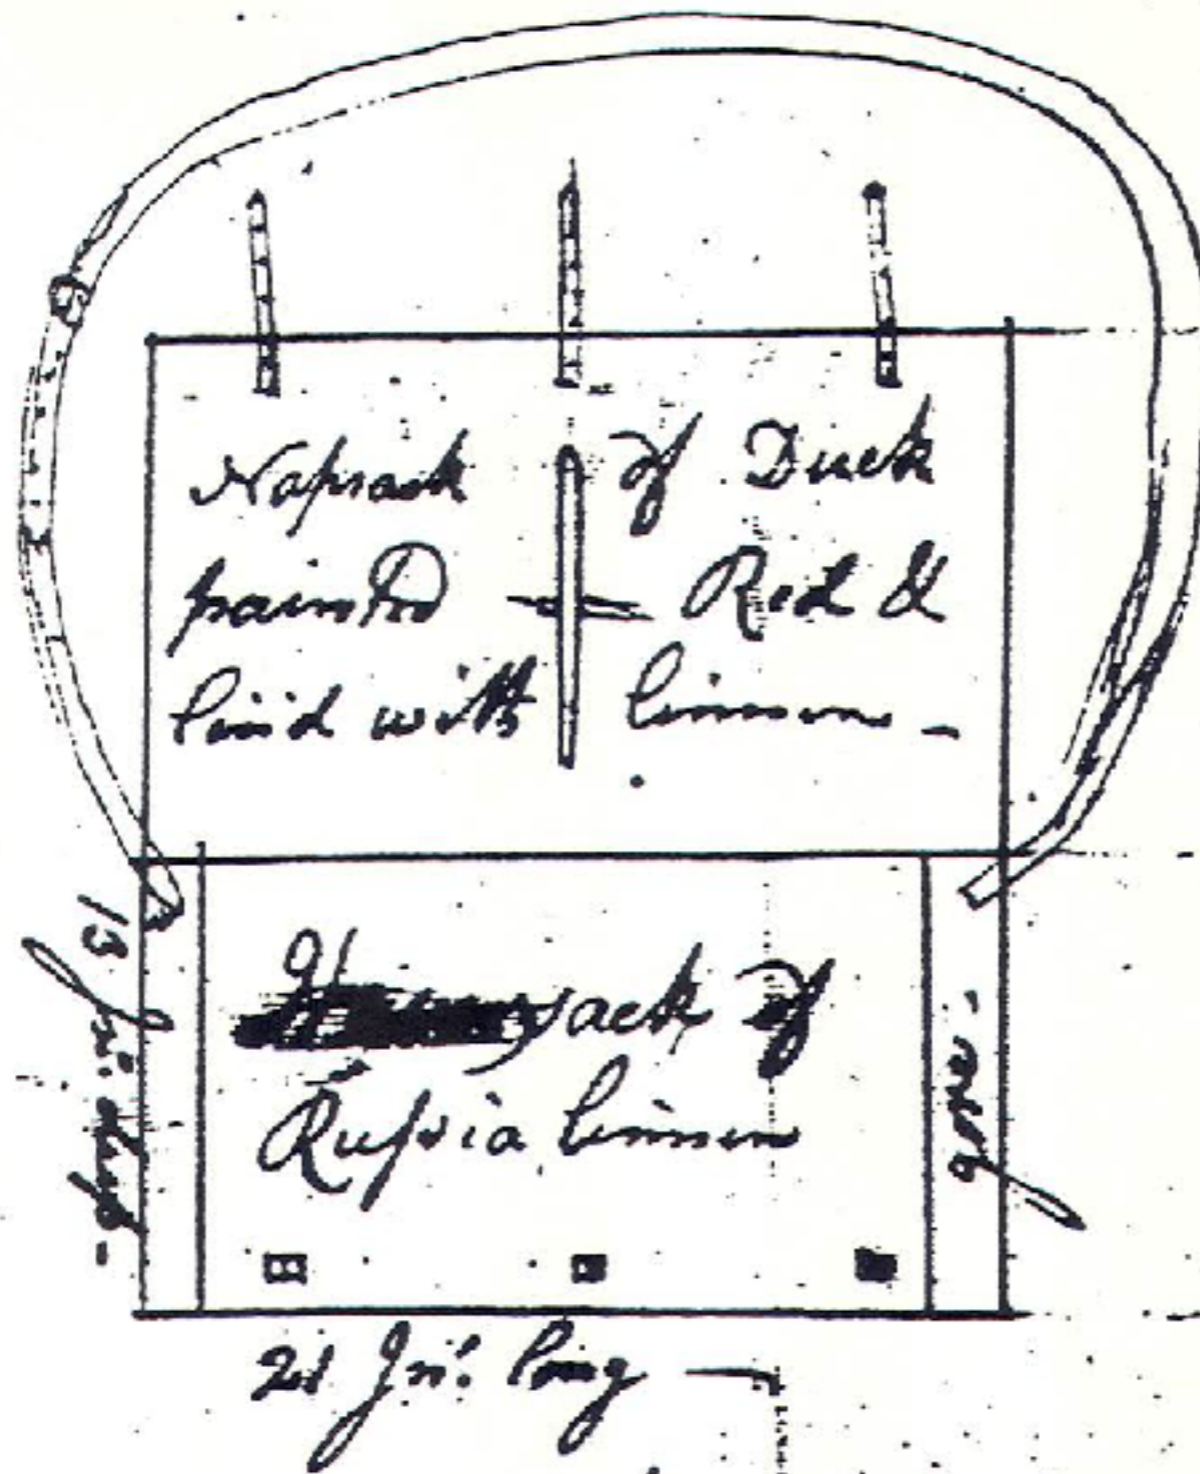 Napsack of Duck
painted Red &
lin'd with linnen -
sack of
Russia linnen
13 In.s deep -
gore -
21 In.s long